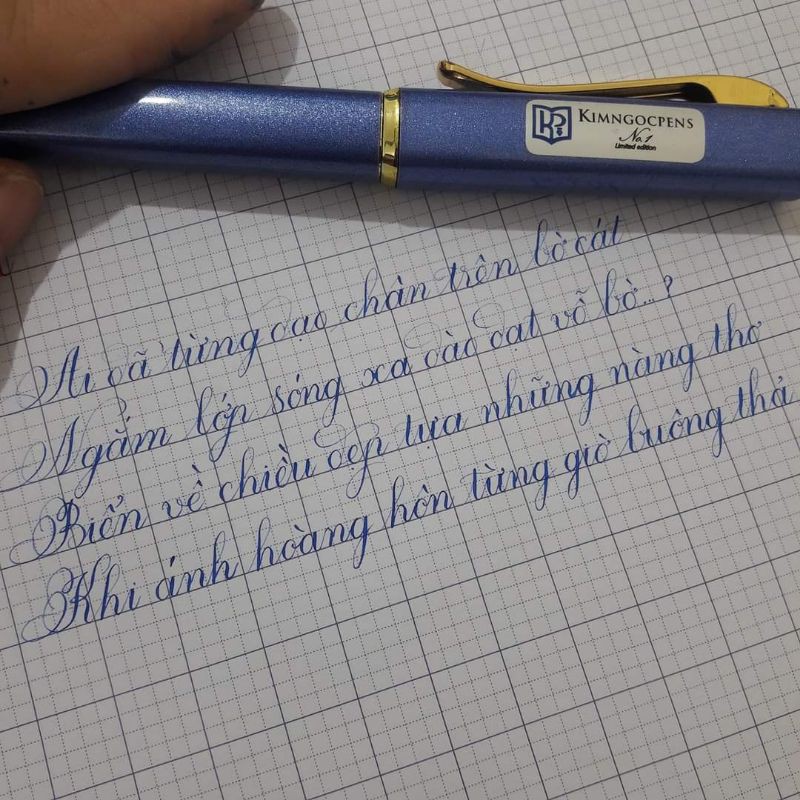 KIMNGOCPENS
No.1
Limited edition
Ai đã từng dạo chân trên bờ cát
Ngắm lớp sóng xa dào dạt vỗ bờ...?
Biển về chiều đẹp tựa những nàng thơ
Khi ánh hoàng hôn từng giờ buông thả